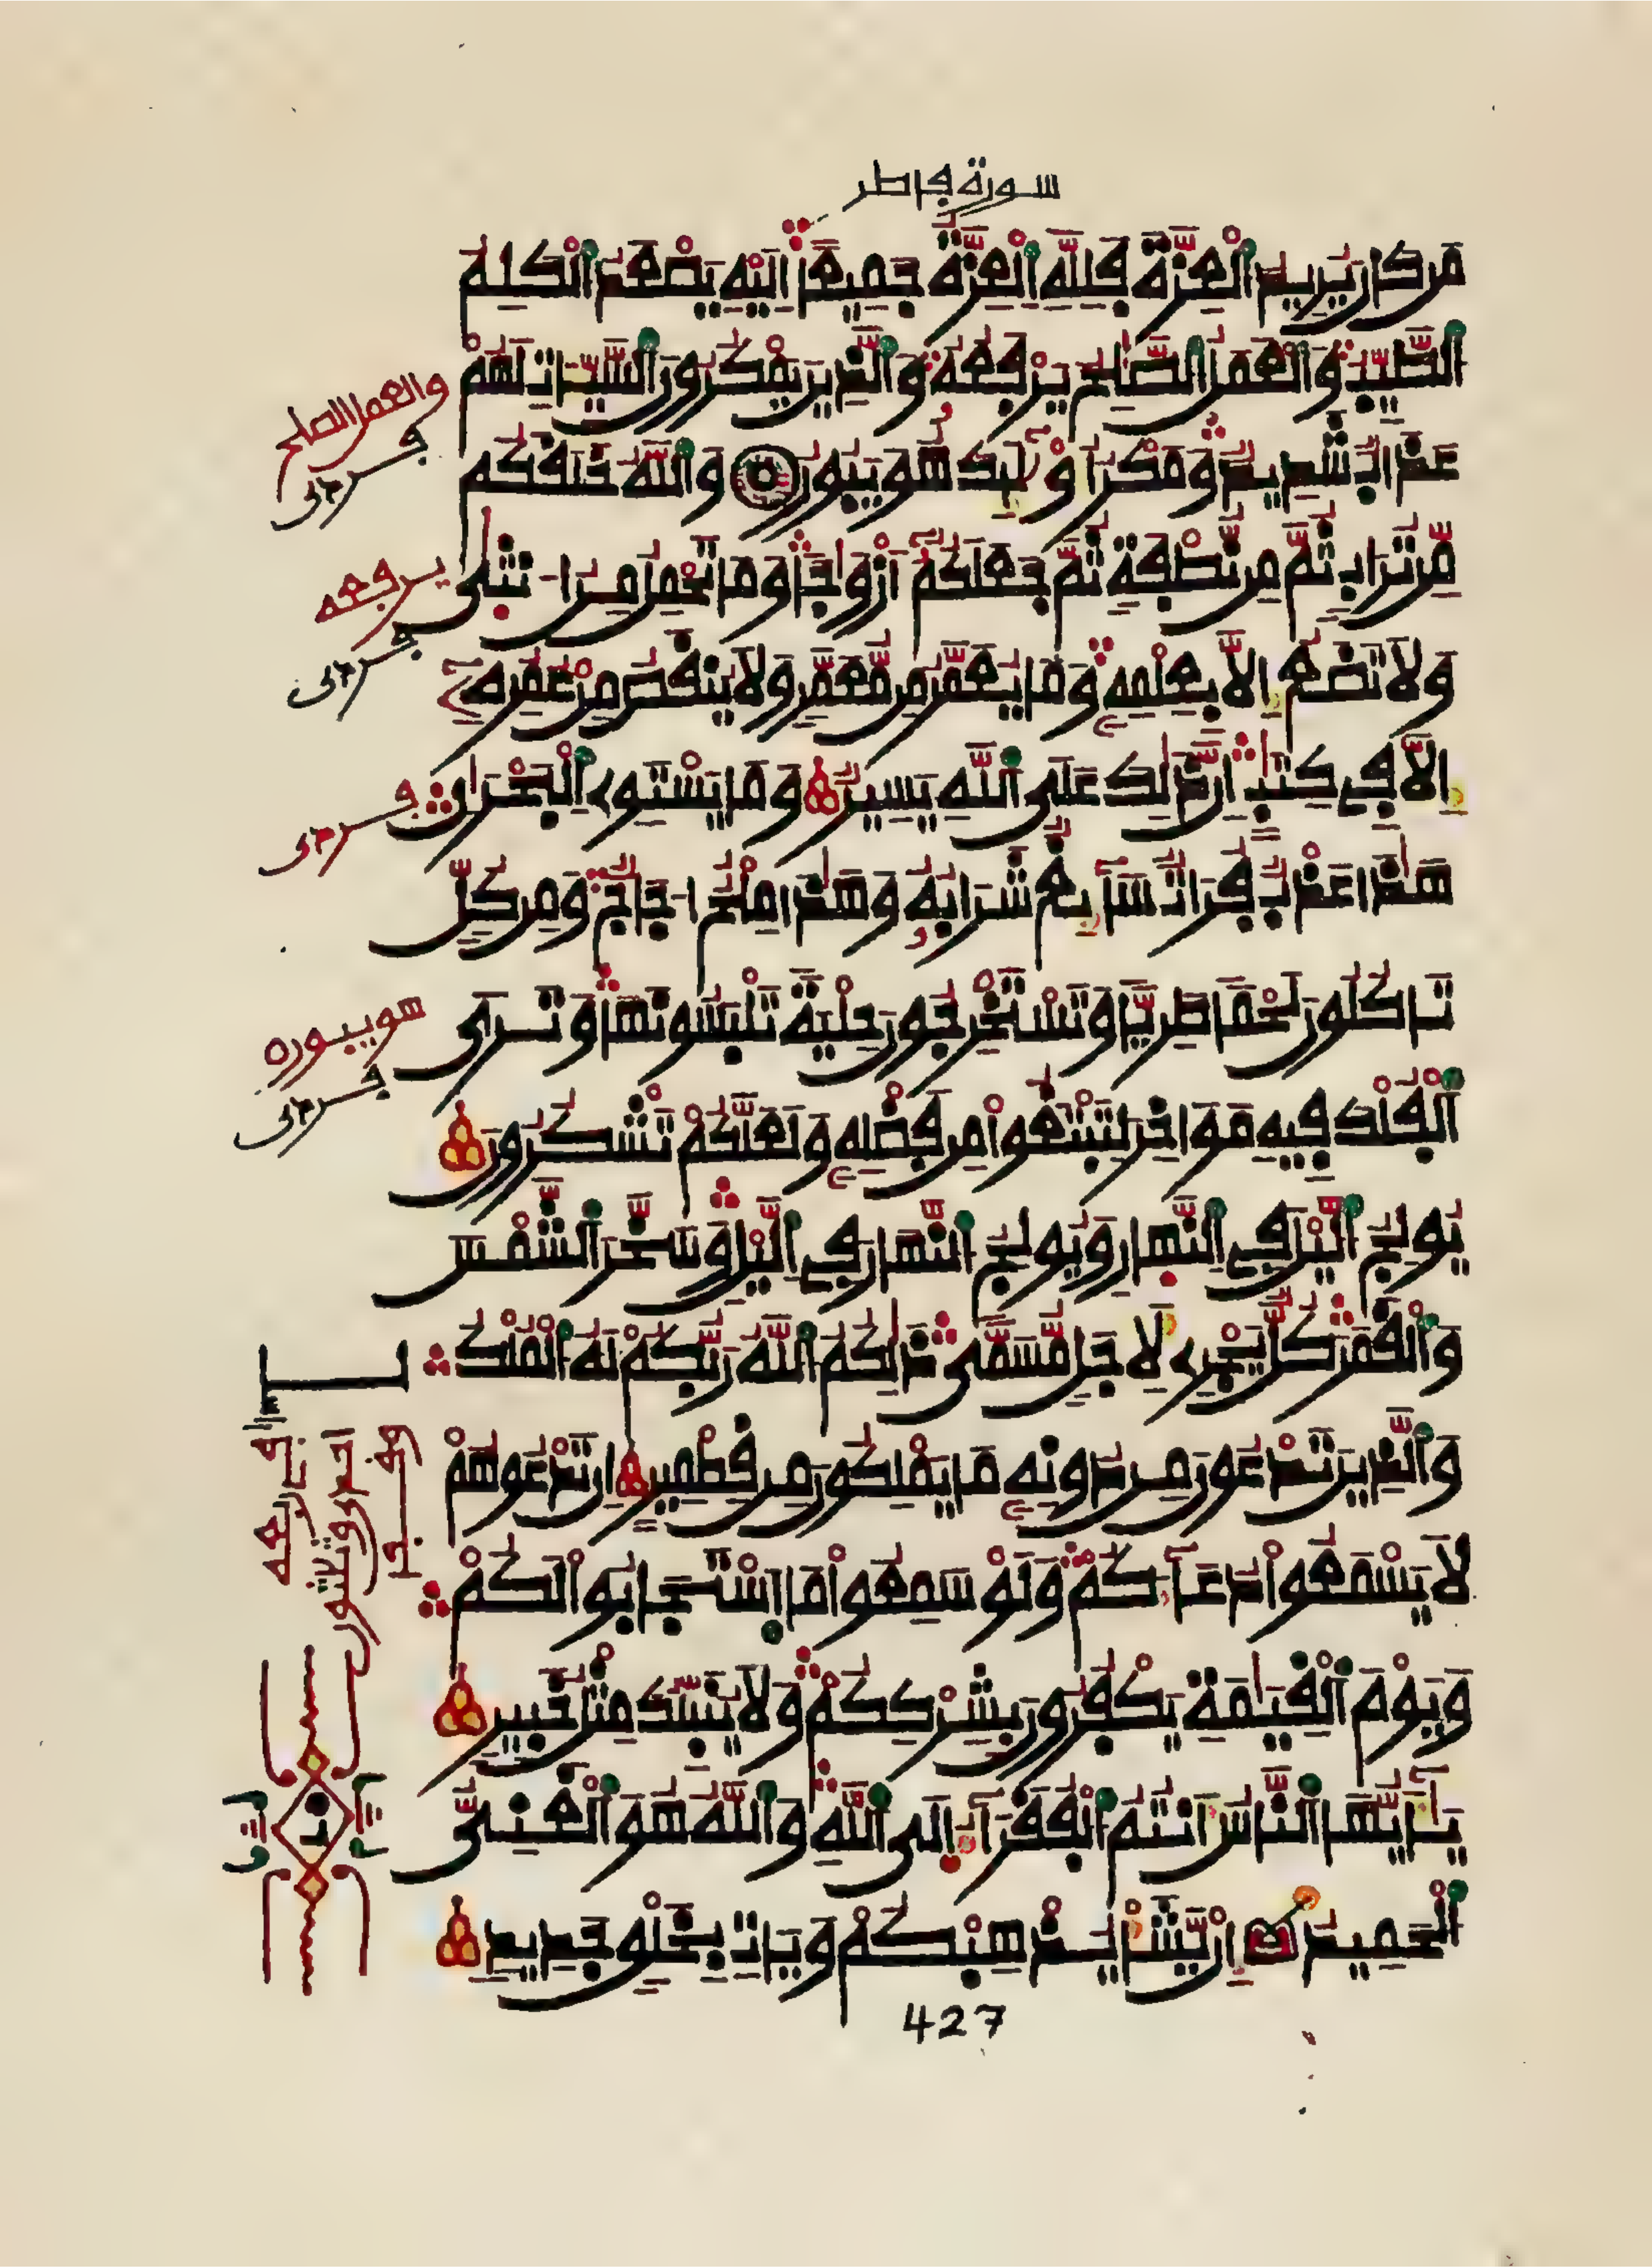 سورة فاطر
مَن كَانَ يُرِيدُ اَلْعِزَّةَ فَلِلهِ اِلْعِزَّةُ جَمِيعًا اِلَيْهِ يَصْعَدُ اَلْكَلِمُ
اُلطَّيِّبُ وَالْعَمَلُ اُلصَّٰلِحُ يَرْفَعُهُ وَالذِينَ يَمْكُرُونَ اَلسَّيِّـَٔاتِ لَهُمْ
عَذَابٌ شَدِيدٌ وَمَكْرُ أُوْلَٰٓئِكَ هُوَ يَبُورُ وَاللَّهُ خَلَقَكُم
مِّن تُرَابٍ ثُمَّ مِن نُّطْفَةٍ ثُمَّ جَعَلَكُمُ أَزْوَٰجًا وَمَا تَحْمِلُ مِنُ ا۟نثَىٰ
وَلَا تَضَعُ إِلَّا بِعِلْمِهِ وَمَا يُعَمَّرُ مِن مُّعَمَّرٍ وَلَا يُنقَصُ مِنْ عُمُرِهِ
إِلَّا فِي كِتَٰبٍ اِنَّ ذَٰلِكَ عَلَى اَللَّهِ يَسِيرٌ وَمَا يَسْتَوِي اِلْبَحْرَانِ
هَٰذَا عَذْبٌ فُرَاتٌ سَآئِغٌ شَرَابُهُ وَهَٰذَا مِلْحٌ ا۟جَاجٌ وَمِن كُلٍّ
تَاكُلُونَ لَحْمًا طَرِيًّا وَتَسْتَخْرِجُونَ حِلْيَةً تَلْبَسُونَهَا وَتَرَى
اَلْفُلْكَ فِيهِ مَوَاخِرَ لِتَبْتَغُوا مِن فَضْلِهِ وَلَعَلَّكُمْ تَشْكُرُونَ
يُولِجُ اُلَّيْلَ فِي اِلنَّهَارِ وَيُولِجُ اُلنَّهَارَ فِي اِلَّيْلِ وَسَخَّرَ اَلشَّمْسَ
وَالْقَمَرَ كُلٌّ يَجْرِي لِأَجَلٍ مُّسَمًّى ذَٰلِكُمُ اُللَّهُ رَبُّكُمْ لَهُ اُلْمُلْكُ
وَالذِينَ تَدْعُونَ مِن دُونِهِ مَا يَمْلِكُونَ مِن قِطْمِيرٍ اِن تَدْعُوهُمْ
لَا يَسْمَعُوا دُعَآءَكُمْ وَلَوْ سَمِعُوا مَا اَسْتَجَابُوا لَكُمْ
وَيَوْمَ اَلْقِيَٰمَةِ يَكْفُرُونَ بِشِرْكِكُمْ وَلَا يُنَبِّئُكَ مِثْلُ خَبِيرٍ
يَٰٓأَيُّهَا اَلنَّاسُ أَنتُمُ اُلْفُقَرَآءُ إِلَى اَللَّهِ وَاللَّهُ هُوَ اَلْغَنِيُّ
اُلْحَمِيدُ إِن يَّشَأْ يُذْهِبْكُمْ وَيَاتِ بِخَلْقٍ جَدِيدٍ
427
والعمل الصلح
يرفعه
هو يبور